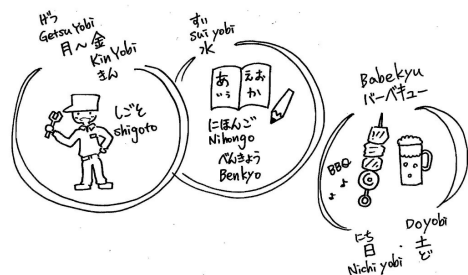 げつ
Getsu Yobi
月〜金
Kin Yobi
きん
しごと
shigoto
すい
sui yobi
水
あ
いう
えお
か
にほんご
Nihongo
べんきょう
Benkyo
Babekyu
バーベキュー
BBQ
にち
日
Nichi yobi
・
Doyobi
土
ど